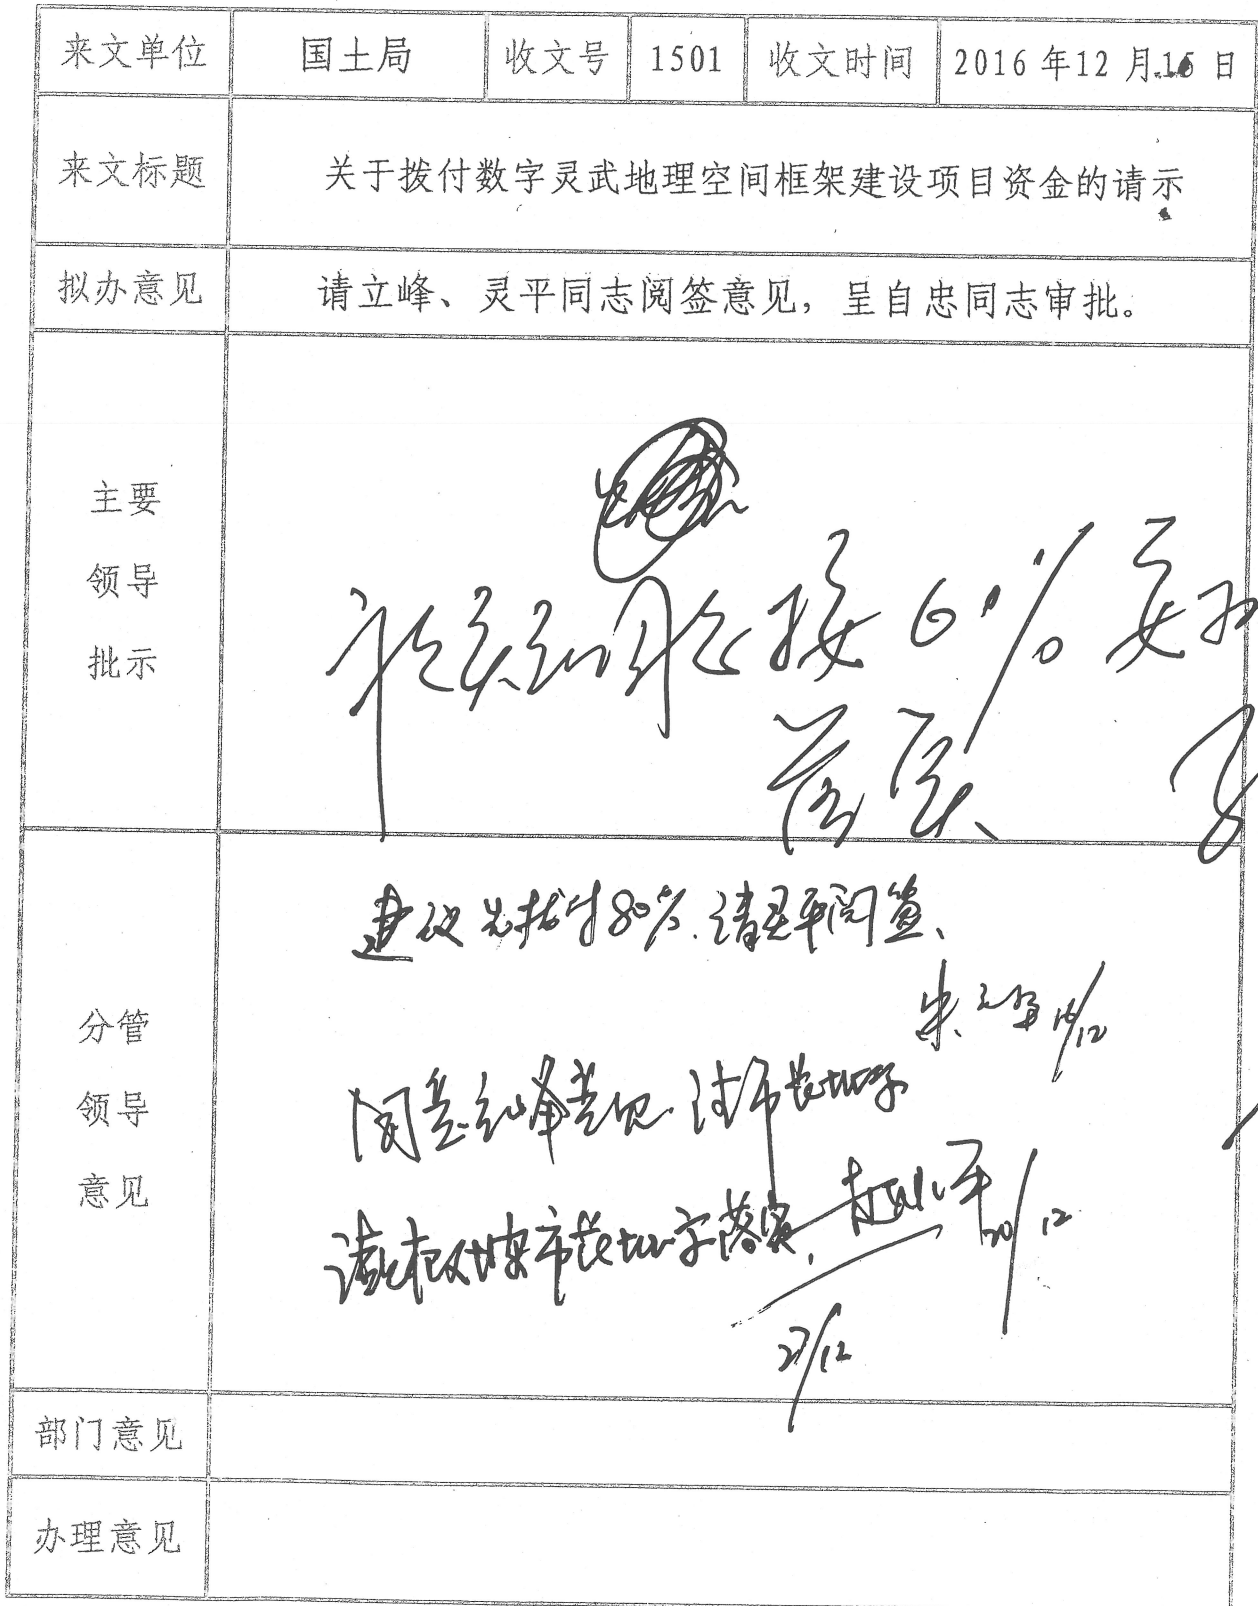 来文单位 国土局 收文号 1501 收文时间 2016年12月16日
来文标题 关于拨付数字灵武地理空间框架建设项目资金的请示
拟办意见 请立峰、灵平同志阅签意见，呈自忠同志审批。
主要
领导
批示
按60%
落实
建议先拨付80%.请灵平阅签、
朱立峰 16/12
分管
领导
意见
同意立峰意见.请市长批示
20/12
市长批字落实.
27/12
部门意见
办理意见